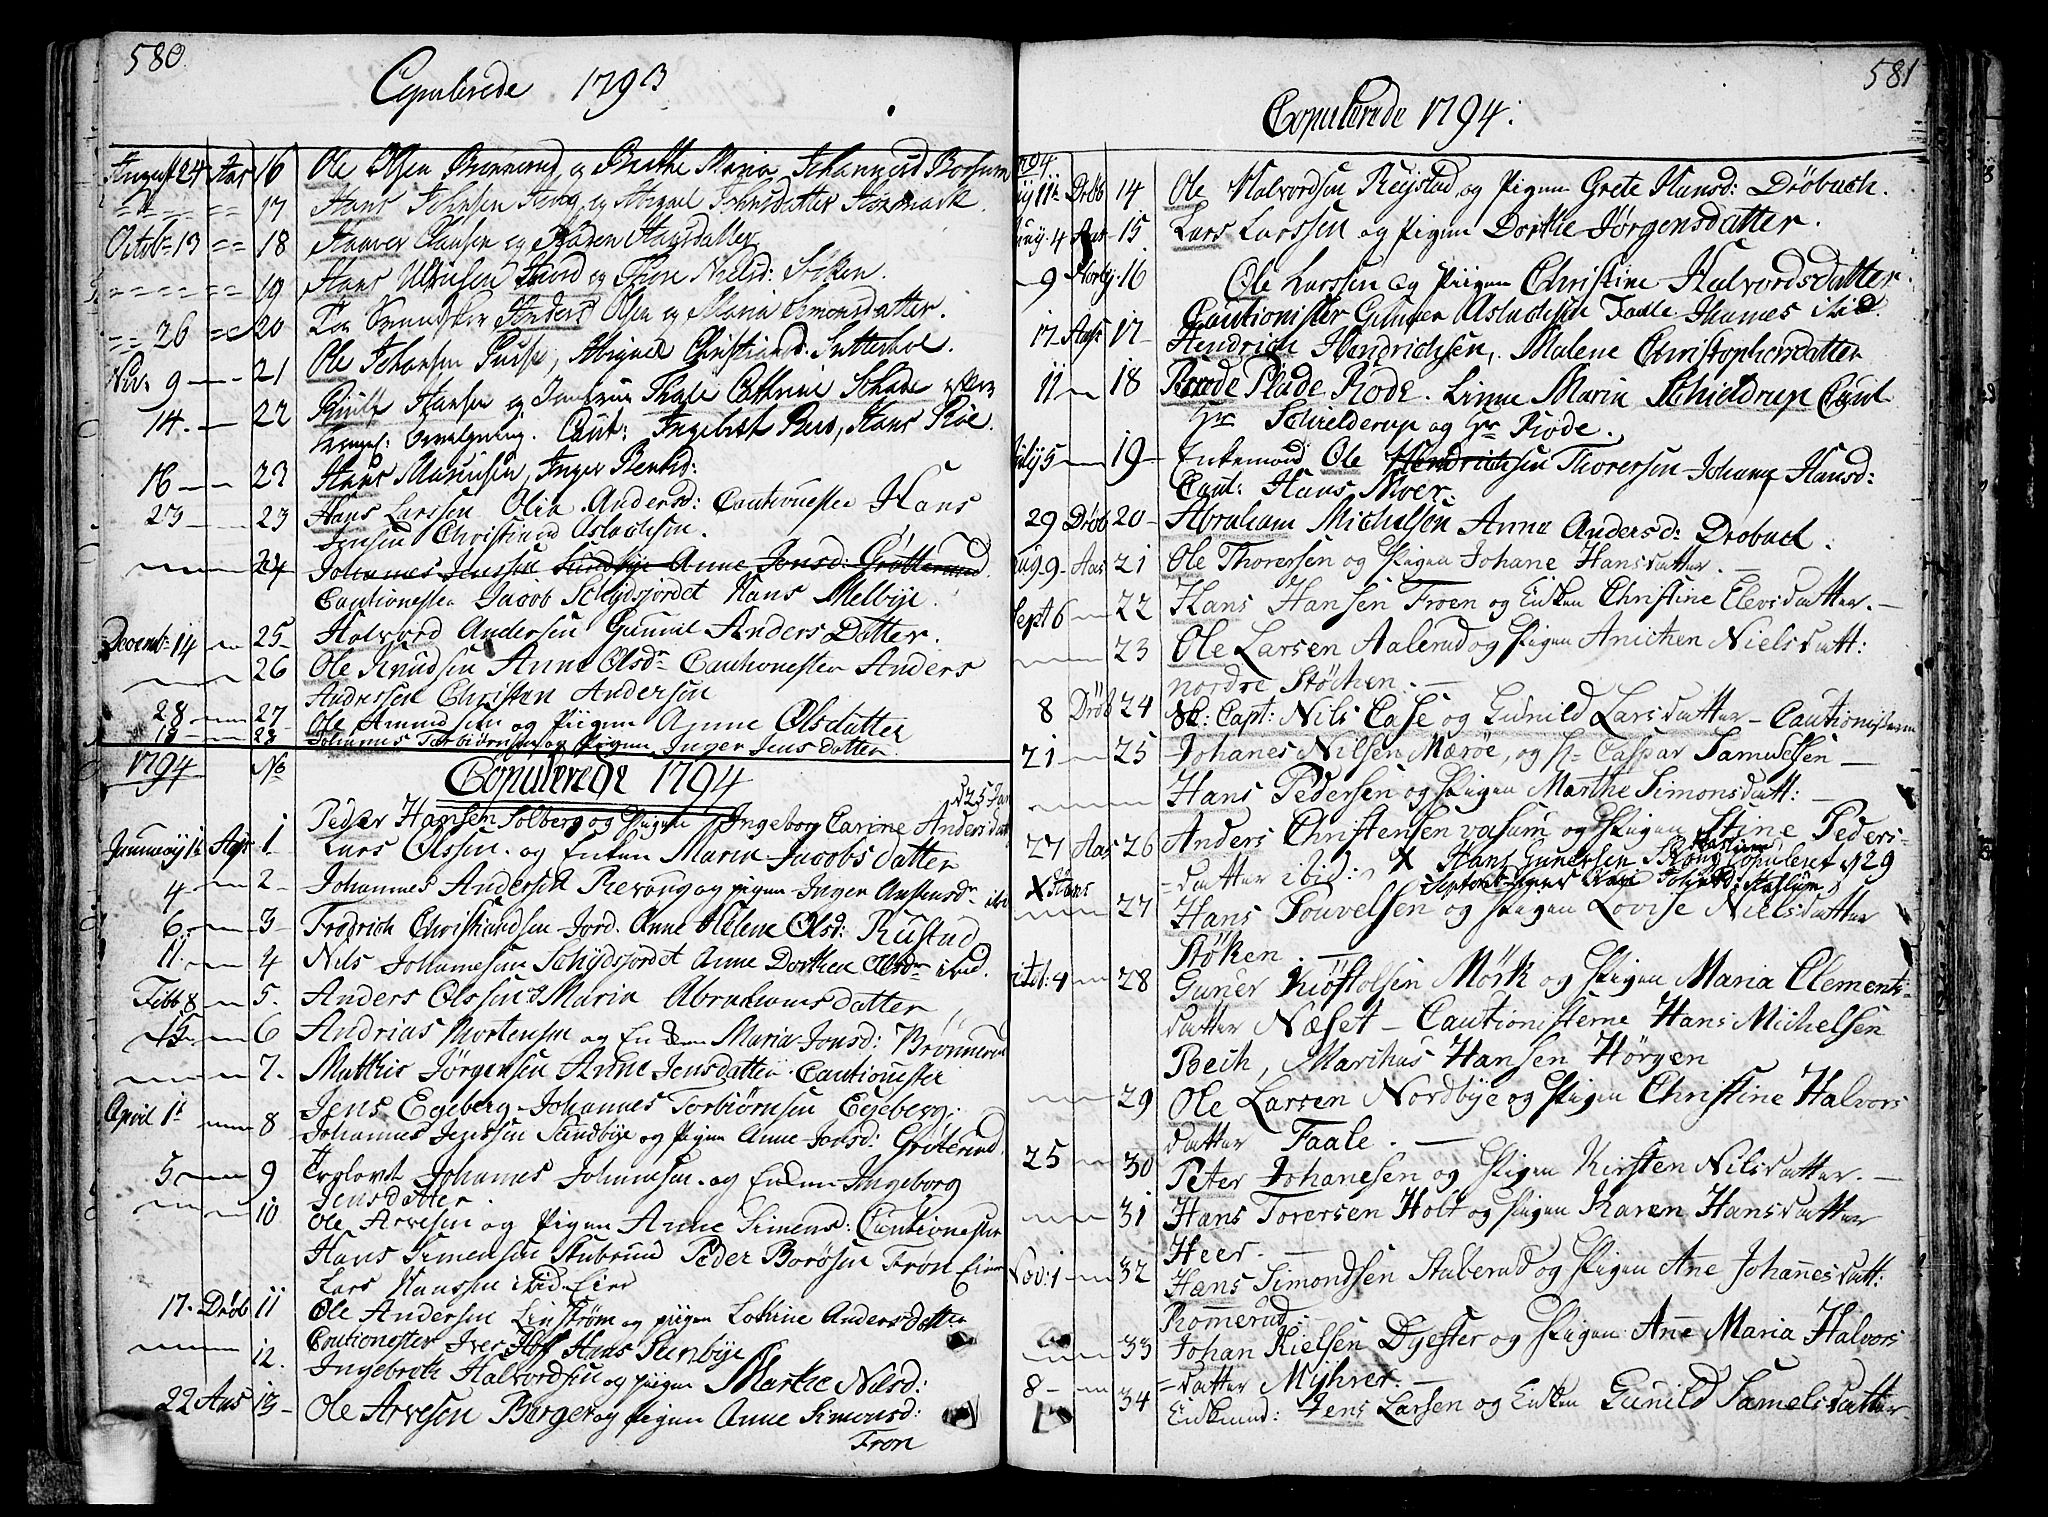 580.
Copulerede 1793
August 24 Aas 16 Ole Olsen Brønnerud og Birthe Maria Johannesd Bossum
17 Hans Johnsen og Abigael Johnsdatter
Octob: 13 == 18 Haaver Clausen og Haagsdatter
19 Hans Nielsen og Thore Nielsd: Støken.
26 == 20 Anders Olsen og Maria Simonsdatter.
Nov: 9 — 21 Ole Johansen Abigael Christiansd: Sutterhol.
14. — 22 Hansen og Jomfrue Thale Cathrine Schade efter
Kongel: Bevilgning. Caut: Ingebret Hans
16 — 23 Hans Inger Bentsd:
23 — 23 Hans Larssen Olia Andersd: Cautionester Hans
Jensen Christian Aslachsen.
24 Johannes Jenssen Sundbye Anne Jonsd: Grøtterud.
Cautionester Jacob Schydsjordet Hans Melbye.
Decemb: 14 — 25 Halvord Andersen Gunnil Anders Datter.
26 Ole Knudsen Anne Olsdr Cautionester Anders
Anderssen Christen Andersen
28 — 27 Ole Amundsen og Piigen Anne Olsdatter
28 Johannes Torbiørnsen og Pigen Inger Jens datter
1794 No Copulerede 1794
Peder Hansen Solberg og Pigen Ingeborg Carine Anders dat
January 1t Aas 1. Lars Olssen og Enken Maria Jacobs datter
4 — 2 Johannes Andersen Revoug og pigen Inger
6 — 3 Fredrich Christiandsen Jord. Anne Helene Olsd: Rustad
11. — 4 Nils Johannesen Schydsjordet Anne Dorthea Olsdr ibid.
Febb 8 — 5. Anders Olssen & Maria Abrahams datter
15 — 6 Andrias Mortensen og Enken Maria Jonsd: Brønnerud
7. Mathis Jørgensen Anne Jensdatter Cautionester
Jens Egeberg Johannes Torbiørnsen Egeberg.
April 1t — 8 Johannes Jenssen Sundbye og Pigen Anne Jonsd: Grøterud
5 — 9 Johannes Johannesen og Enken Ingeborg
Jensdatter
10. Ole Arvesen og Pigen Anne Simens: Cautionester
Hans Simensen Stubrud Peder Borøsen Frøn Eier
Lars Hanssen ibid Eier
17. Drøb 11 Ole Andersen Linstrøm og pigen Lothine Anders datter
Cautionester Iver Hoff Hans Sunbye
12. Ingebreth Halvordsen og pigen Marthe Nilsd:
22 Aas 13 — Ole Arvesen Berger og Pigen Anne Simonsd:
Frøn
581
Copulerede 1794:
11t Drøb 14 Ole Halvordsen Reystad og Pigen Grete Hansd: Drøbach.
4 Aas 15 Lars Larssen og Pigen Dorthe Jørgensdatter.
9 Norby 16 Ole Larssen og Piigen Christine Halvordsdatter
Cautionister Gunner Aslachsen Faale Thomes ibid.
17 Aas 17 Hendrich Hendrichsen, Malene Christophersdatter
11 — 18 Rode Plade Rode. Linne Maria Schieldrup Caut
Hr Schielderup og Hr Rode.
July 5 — 19 — Enkemand Ole Hendrichsen Thoresen Johanne Hansd:
Caut: Hans Moer.
29 Drøb 20 — Abraham Michelsen Anne Andersd: Drobach.
Aug. 9 Aas 21 Ole Thorersen og Pigen Johane Hansdatter. —
Sept 6 — 22 Hans Hansen Froen og Enken Christine Elevsdatter. —
23 Ole Larsen Aalerud og Pigen Anichen Nielsdatt:
nordre Støchen. —
8 Drøb 24 Sk: Capt: Nils Case og Gunild Larsdatter — Cautionisterne
21 — 25 Johanes Nilsen Mærøe, og Hr Caspar Samuelsen —
Hans Pedersen og Pigen Marthe Simonsdatt: —
27 Aas 26 Anders Christensen Vasum og Pigen Stine Peders-
=datter ibid: X Hans Gunersen Skoug Copuleret d 29
X Hans Septembr Kari Johansd: Haslum
27 Hans Pouvelsen og Pigen Lovise Nielsdatter
Støken. —
Octob: 4 — 28 Guner Kiøstolsen Mørk og Pigen Maria Clements-
datter Næset — Cautionisterne Hans Michelsen
Bech, Marchus Hansen Hørgen
29 Ole Larsen Nordbye og Pigen Christine Halvors
datter Faale. —
25 — 30 Peter Johanesen og Pigen Kirsten Nilsdatter. —
31 Hans Torersen Holt og Pigen Karen Hansdatter
Heer. —
Nov: 1 — 32 Hans Simondsen Stuberud og Pigen Ane Johannesdatt:
Romerud. —
33 Johan Kielsen Dyester og Pigen Anne Maria Halvors
=datter Myhrer. —
8 — 34 Enkemd: Jens Larsen og Enken Gunild Samelsdatter